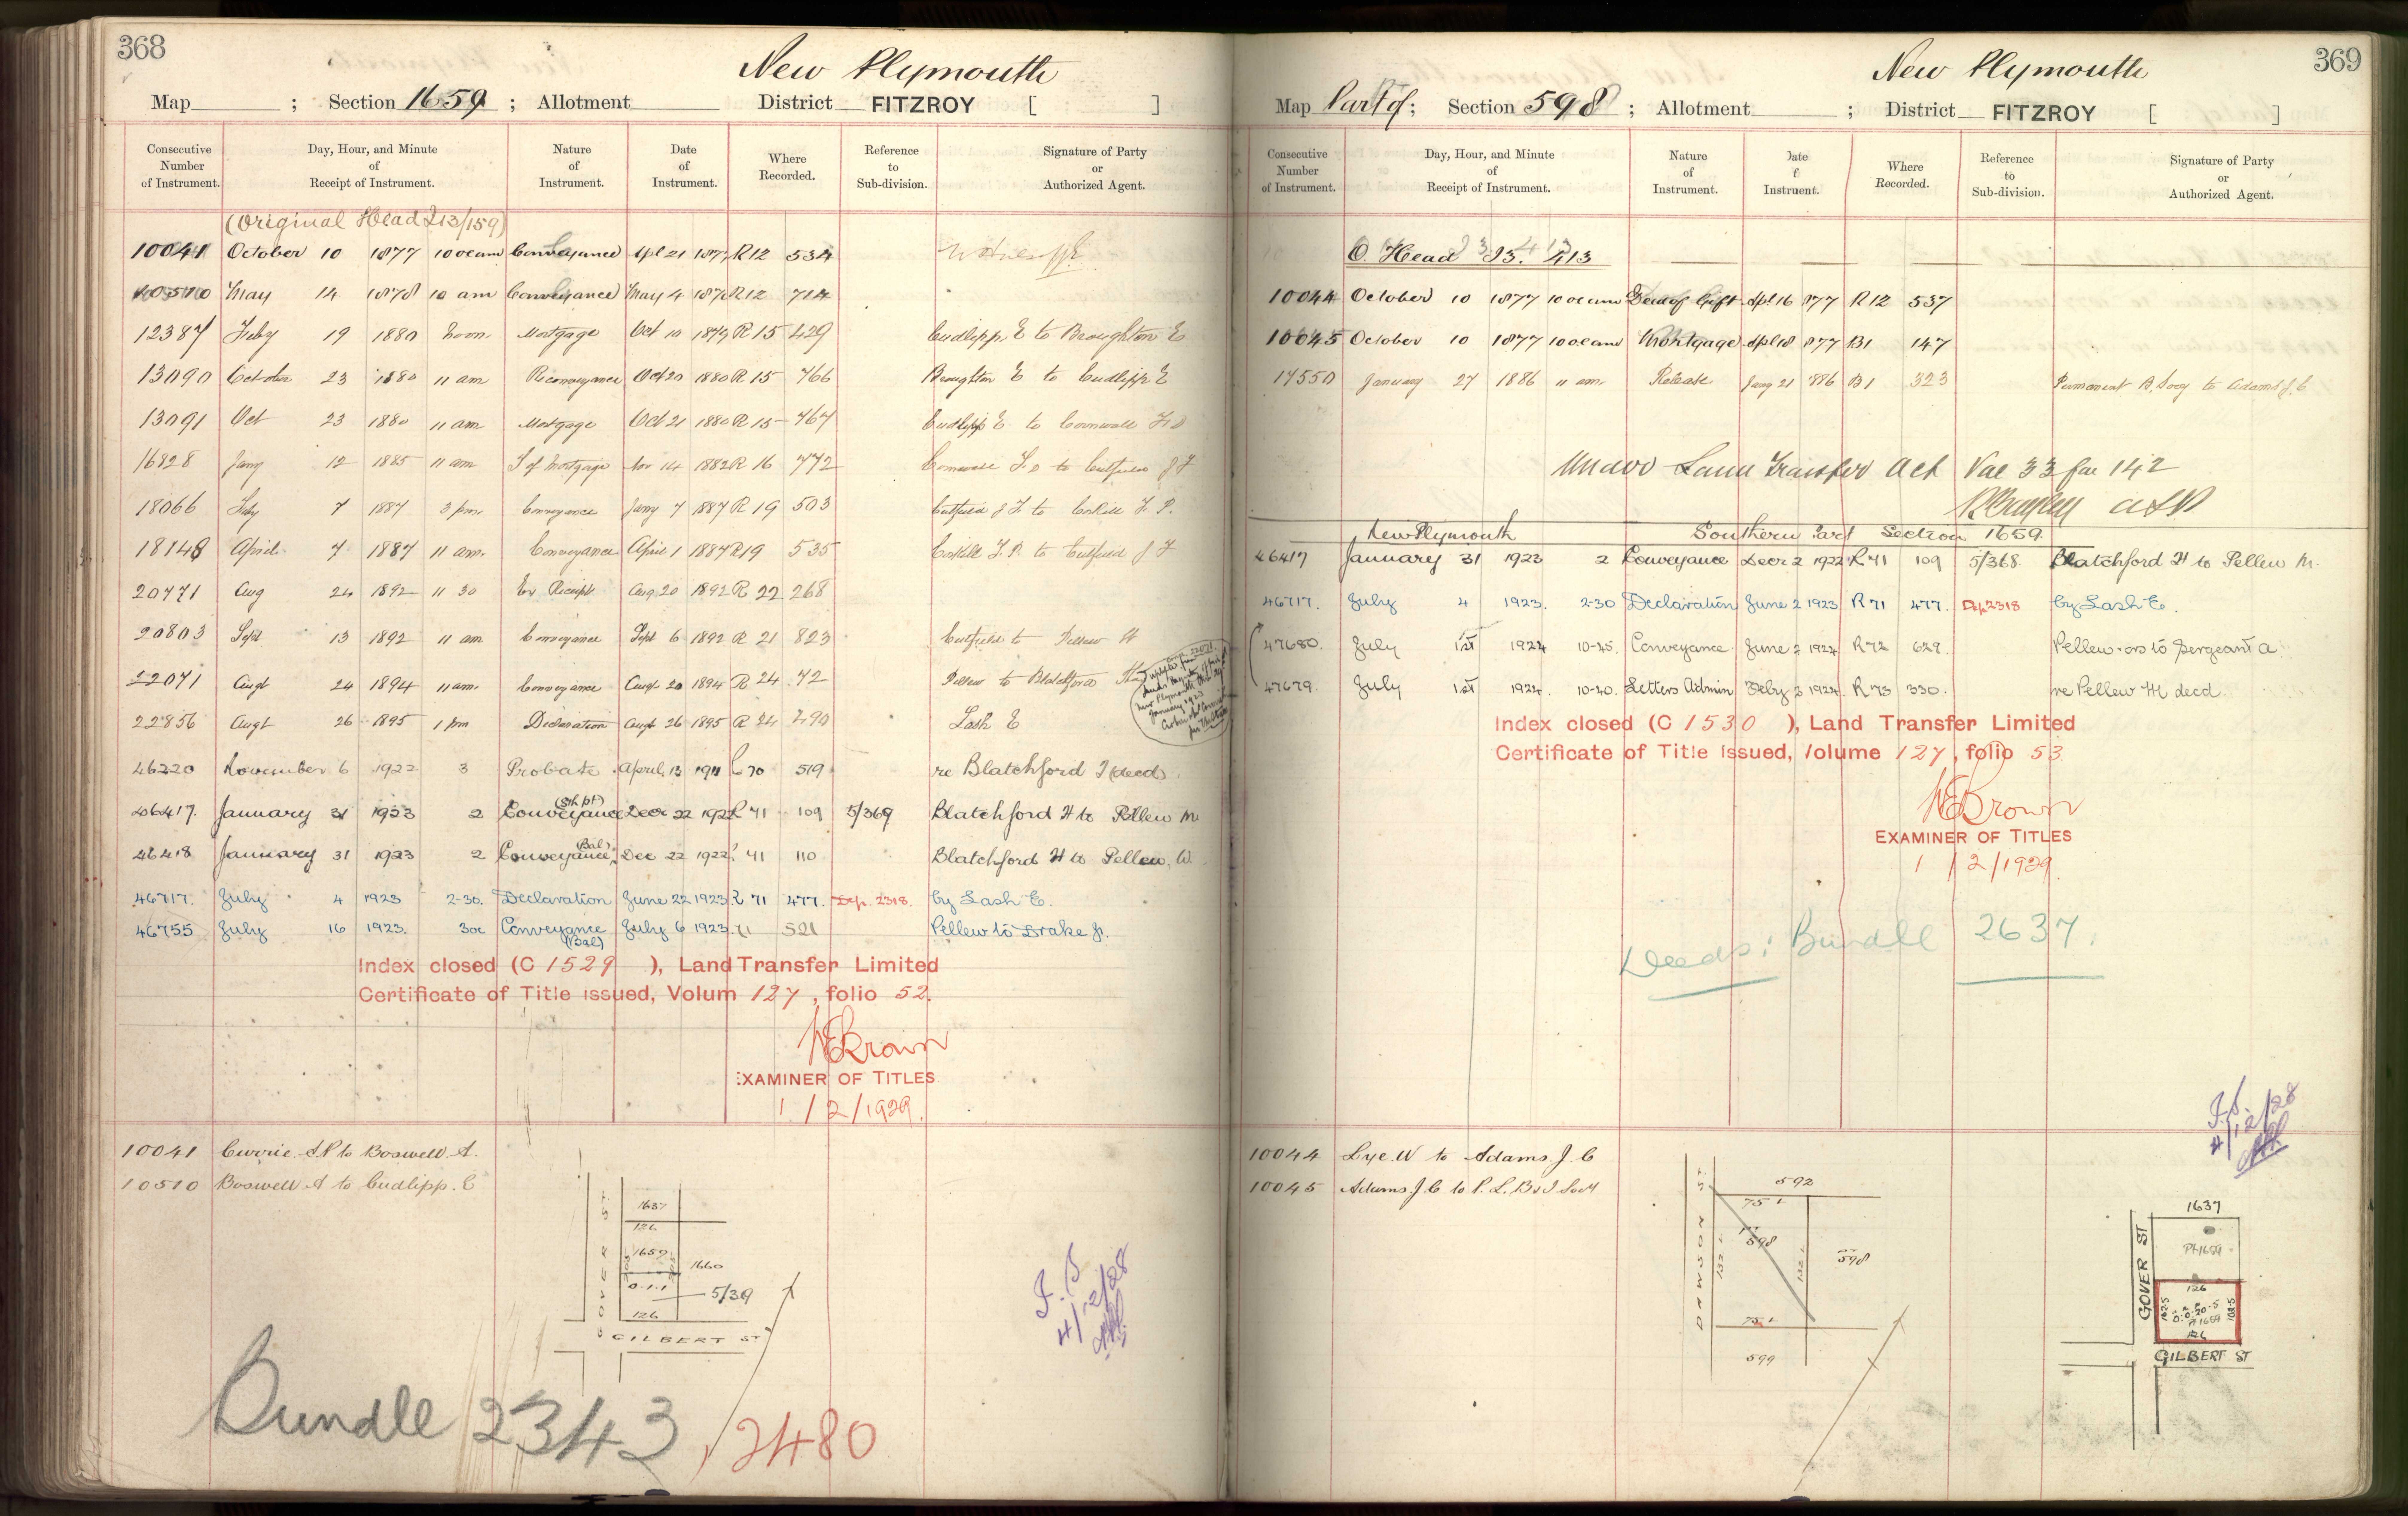 368
New Plymouth
Map ; Section 1659 ; Allotment District FITZROY [ ]
Consecutive Number of Instrument. Day, Hour, and Minute of Receipt of Instrument. Nature of Instrument. Date of Instrument. Where Recorded. Reference to Sub-division. Signature of Party or Authorized Agent.
(Original Head 213/159)
10041 October 10 1877 10 oc am Conveyance Apl 21 1877 R12 534
10510 May 14 1878 10 am Conveyance May 4 1878 R12 714
12387 Feby 19 1880 Noon Mortgage Oct 10 1879 R 15 429 Cudlipp E to Broughton E
13090 October 23 1880 11 am Reconveyance Oct 20 1880 R 15 766 Broughton E to Cudlipp E
13091 Oct 23 1880 11 am Mortgage Oct 21 1880 R 15 767 Cudlipp E to Cornwall F D
16928 Jany 12 1885 11 am T of Mortgage Nov 14 1882 R 16 772 to Cutfield J F
18066 Feby 7 1887 3 pm Conveyance Jany 7 1887 R 19 503 Cutfield J F to Corkill F P.
18148 April 7 1887 11 am. Conveyance April 1 1887 R19 535 Corkill F. P. to Cutfield J F
20771 Aug 24 1892 11 30 Receipt Aug 20 1892 R 22 268
20803 Sept 13 1892 11 am Conveyance Sept 6 1892 R 21 823 Cutfield to Pellew W
22071 Augt 24 1894 11 am. Conveyance Augt 20 1894 R 24 72 Pellew to Blatchford
22856 Augt 26 1895 1 pm Declaration Augt 26 1895 R 24 490 Lash E
46220 November 6 1922 3 Probate April 13 1911 70 519 re Blatchford J (decd)
46417. January 31 1923 2 Conveyance (Sth pt) Decr 22 1922 R 71 109 5/369 Blatchford H to Pellew M
46418 January 31 1923 2 Conveyance (Bal) Dec 22 1922 71 110 Blatchford H to Pellew. W.
46717. July 4 1923 2-30. Declaration June 22 1923 R 71 477. Dep. 2318. by Lash E.
46755 July 16 1923. 3oc Conveyance (Bal) July 6 1923 521 Pellew to Drake J.
Index closed (C 1529 ), Land Transfer Limited
Certificate of Title issued, Volum 127, folio 52.
W E Brown
EXAMINER OF TITLES
1/2/1929.
10041 Currie. to Boswell. A.
10510 Boswell A to Cudlipp. E
GOVER ST
1637
126
1659
1660
0.1.1
5/369
126
GILBERT ST
4/12/28
Bundle 2343, 2480
369
New Plymouth
Map Part of ; Section 598 ; Allotment ; District FITZROY [ ]
Consecutive Number of Instrument. Day, Hour, and Minute of Receipt of Instrument. Nature of Instrument. Date of Instrument. Where Recorded. Reference to Sub-division. Signature of Party or Authorized Agent.
O. Head 413
10044 October 10 1877 10 oc am Deed of Gift Apl 16 1877 R 12 537
10045 October 10 1877 10 oc am Mortgage Apl 18 1877 B1 147
17550 January 27 1886 11 am. Release Jany 21 1886 B1 323 Permanent B. Socy to Adams J. C
Under Land Transfer Act Vol 33 fol 142
New Plymouth Southern Part Section 1659.
46417 January 31 1923 2 Conveyance Decr 2 1922 R 71 109 5/368 Blatchford H to Pellew M.
46717. July 4 1923. 2-30 Declaration June 2 1923 R 71 477. Dep 2318 by Lash E.
47680. July 1st 1924 10-45. Conveyance June 2 1924 R 72 629. Pellew to Sergeant A
47679. July 1st 1924. 10-40. Letters Admin Feby 3 1924. R 73 330. re Pellew M decd.
Index closed (C 1530 ), Land Transfer Limited
Certificate of Title issued, Volume 127, folio 53
W E Brown
EXAMINER OF TITLES
1/2/1929
Deeds: Bundle 2637.
4/12/28
10044 Lye. W to Adams. J. C
10045 Adams. J. C to P. L. B & I. Socy
DAWSON ST
592
75 L
132 L
598
132 L
598
75 L
599
1637
GOVER ST
Pt 1659
126
102.5
0.0.20.5
Pt 1659
126
GILBERT ST